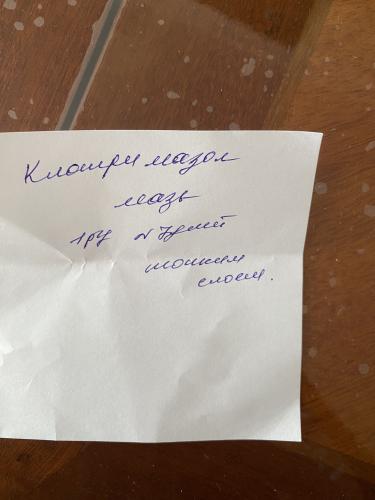 Клотримазол
мазь
1ру N 7 дней
тонким
слоем.